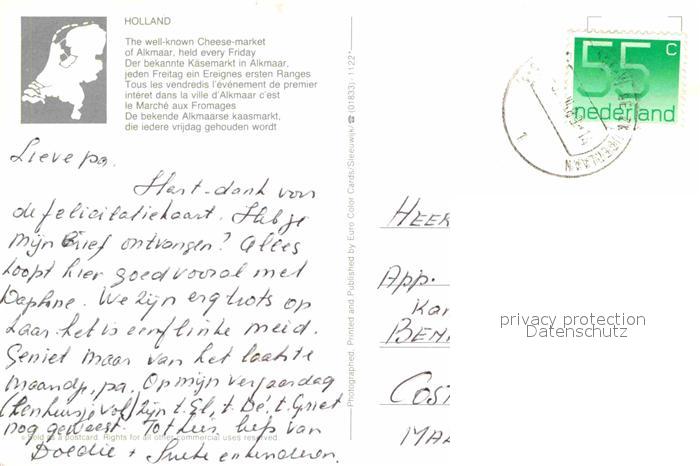 HOLLAND
The well-known Cheese-market
of Alkmaar, held every Friday
Der bekannte Käsemarkt in Alkmaar,
jeden Freitag ein Ereignes ersten Ranges
Tous les vendredis l'événement de premier
intéret dans la ville d'Alkmaar c'est
le Marché aux Fromages
De bekende Alkmaarse kaasmarkt,
die iedere vrijdag gehouden wordt
Lieve pa.
Hart-dank voor
de felicitatiekaart. Heb je
mijn brief ontvangen? Alles
loopt hier goed vooral met
Daphne. We zijn erg trots op
haar. het is een flinke meid.
Geniet maar van het laatste
maandje, pa. Op mijn verjaardag
zijn t. El, t. Dé, t. Griet
nog geweest. Tot kus, liefs van
Doedie + en kinderen.
Photographed, Printed and Published by Euro Color Cards/Sleeuwijk/☎ (01833)-1122*
© Sold as a postcard. Rights for all other commercial uses reserved
55 c
nederland
1
HEER
App.
Kar
BEN
COST
MA
privacy protection
Datenschutz